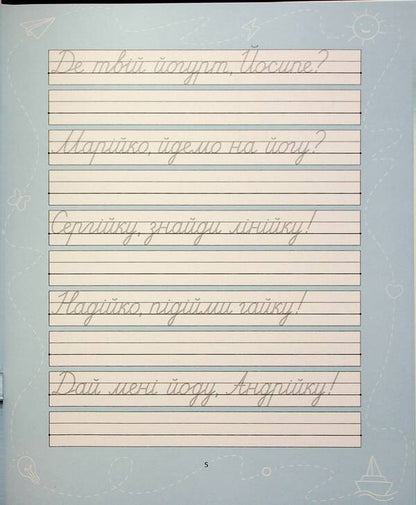 Де твій йогурт, Йосипе?
Марійко, йдемо на йогу?
Сергійку, знайди лінійку!
Надійко, підійми гайку!
Дай мені йоду, Андрійку!
5